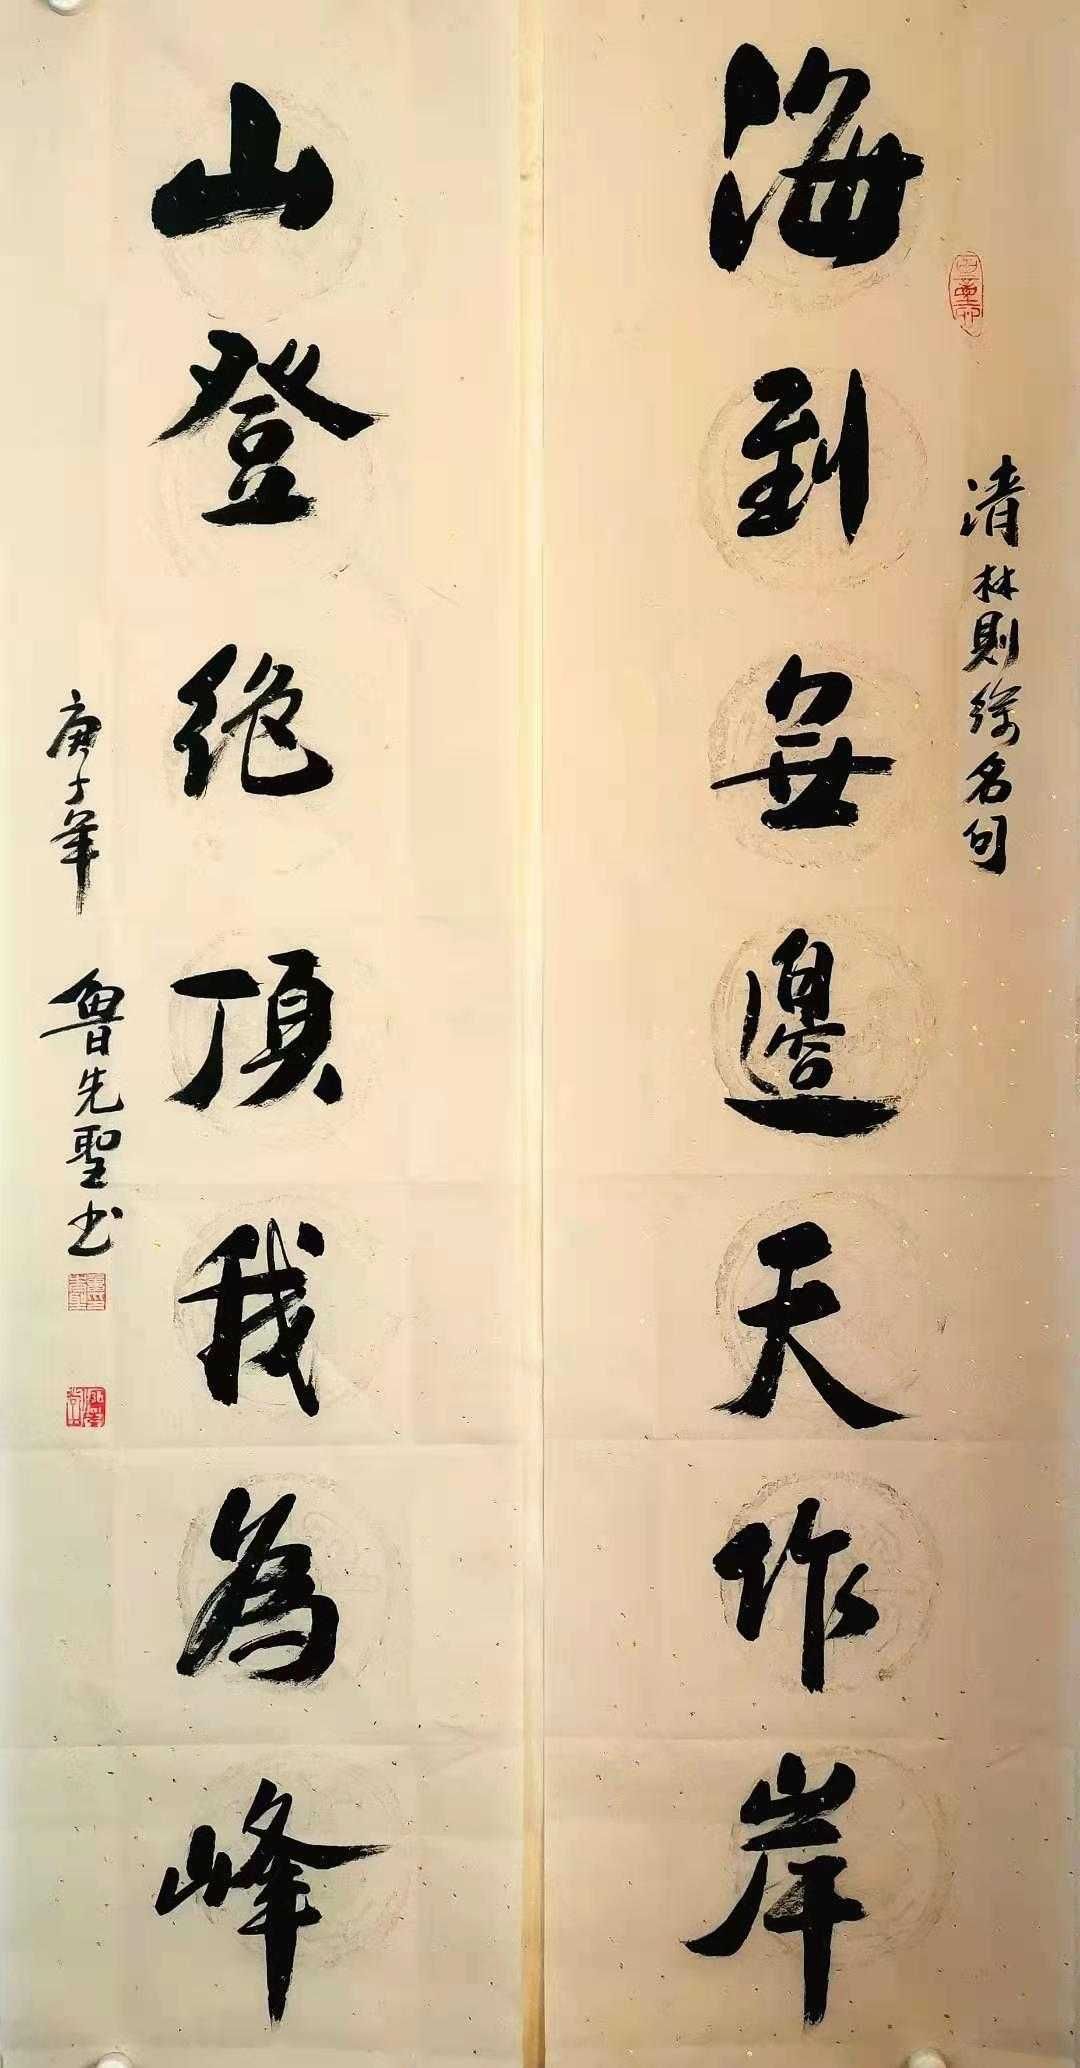 清林則徐名句
海到無邊天作岸
山登絕頂我為峰
庚子年 魯先聖書